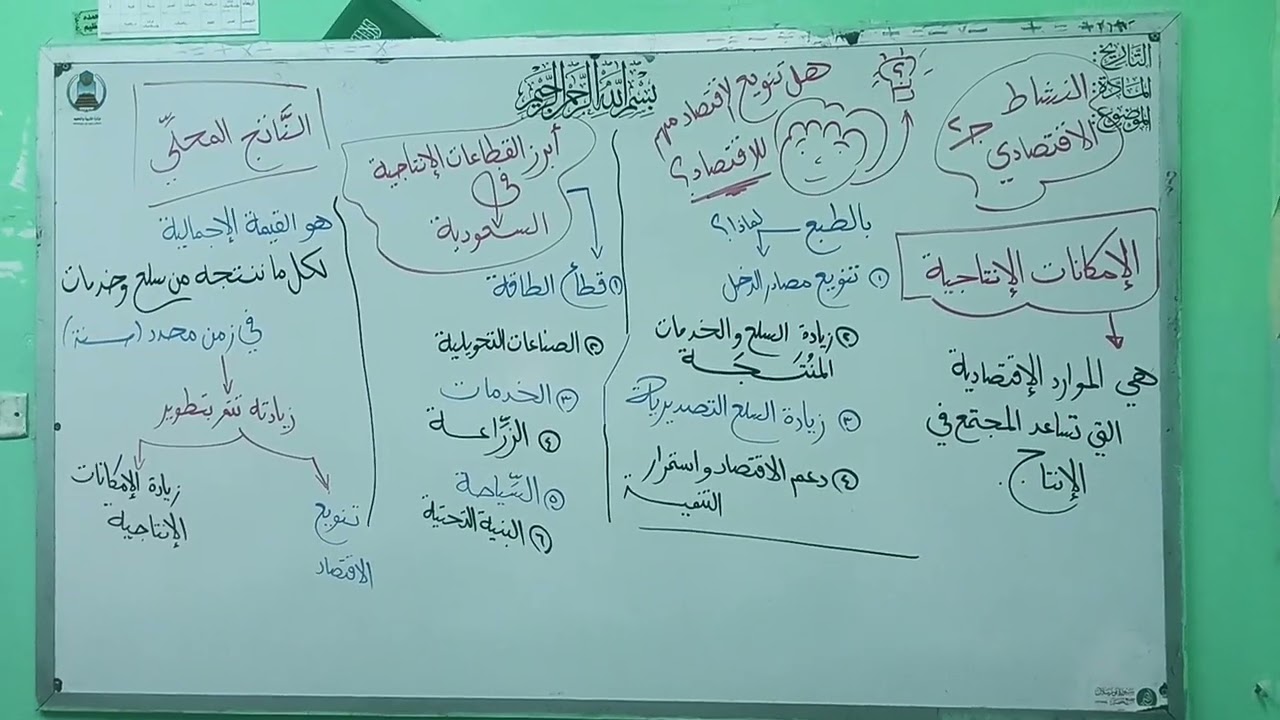 بسم الله الرحمن الرحيم
التاريخ:
المادة:
الموضوع:
النشاط
الاقتصادي ج٢
الإمكانات الإنتاجية
هي الموارد الإقتصادية
التي تساعد المجتمع في
الإنتاج.
هل تنويع لاقتصاد مهم
للاقتصاد؟
؟
بالطبع لماذا؟
١ تنويع مصادر الدخل
٢ زيادة السلع والخدمات
المنُتَجَة
٣ زيادة السلع التصديرية
٤ دعم الاقتصاد واستمرار
التنمية
أبرز القطاعات الإنتاجية
في
السعودية
١ قطاع الطاقة
٢ الصناعات التحويلية
٣ الخدمات
٤ الزِّراعة
٥ السِّياحة
٦ البنية التحتية
النَّاتج المحلِّي
هو القيمة الإجمالية
لكل ما ننتجه من سلع وخدمات
في زمن محدد (سنة)
زيادته تتم بتطوير
تنويع
الاقتصاد
زيادة الإمكانات
الإنتاجية